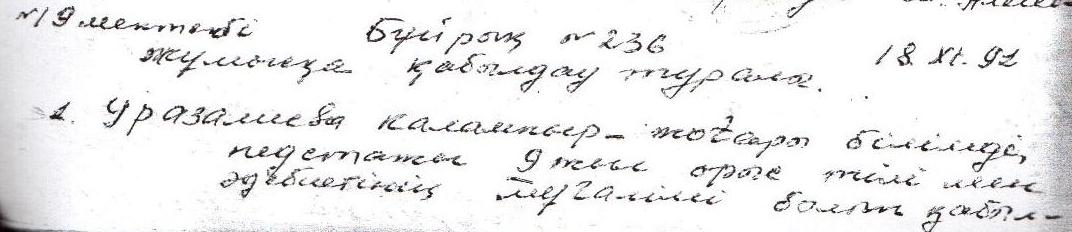 №19 мектебі Бұйрық №236 18.XI.92
жұмысқа қабылдау туралы.
1. Уразалиева Калампыр - жоғары білімді,
педстажы 9 жыл орыс тілі мен
әдебиетінің мұғалімі болып қабыл-